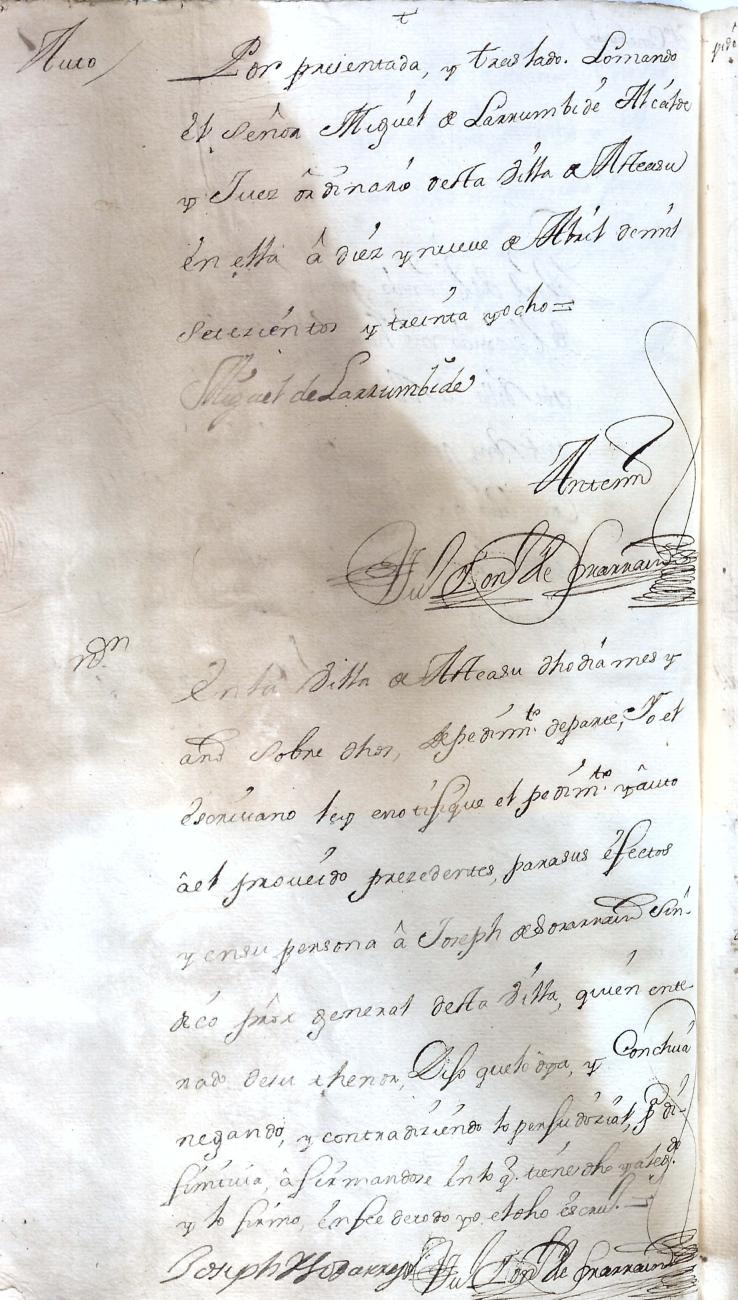 Auto
Por presentada, y treslado. Lo mando
el Señor Miguel de Larrumbide Alcalde
y Juez ordinario desta Villa de Asteasu
en ella â diez y nueve de Abril de mil
setecientos y treinta y ocho =
Miguel de Larrumbide
Antemi
en la Villa de Asteasu dho dia mes y
año sobre dhos, de pedimto de parte, Yo el
escrivano ley e notifique el pedimto y auto
â el proveido prezedentes, para sus efectos
y en su persona â Joseph de Sorarrain Sin-
dico pror general desta Villa, quien ente-
rado de su thenor, Dijo que lo oya, y Concluia
negando, y contradiziendo lo perjudizial, pa di-
finitiva, âfirmandose en lo q. tiene dho y alegdo
y lo firmo, en fee de todo yo el dho escrivo =
Joseph